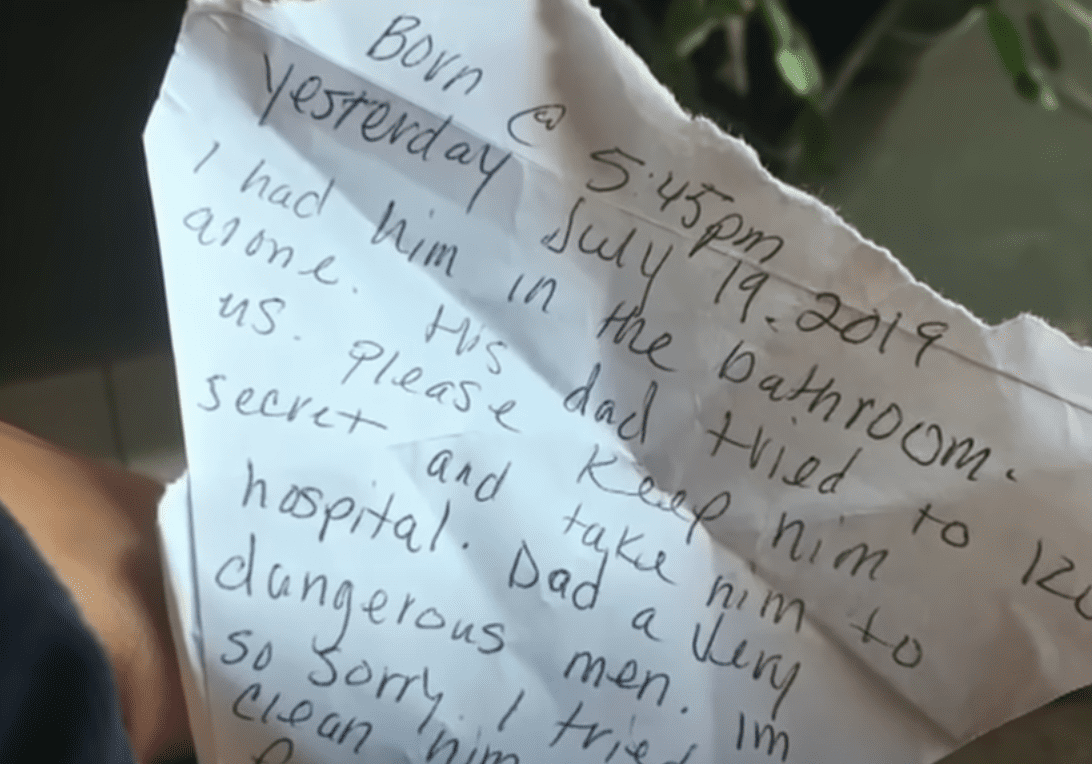 Born @ 5:45pm
Yesterday July 19. 2019
I had him in the bathroom.
alone. His dad tried to
us. please keep him
secret and take him to
hospital. Dad a Very
dangerous men. Im
so sorry. I tried
clean him